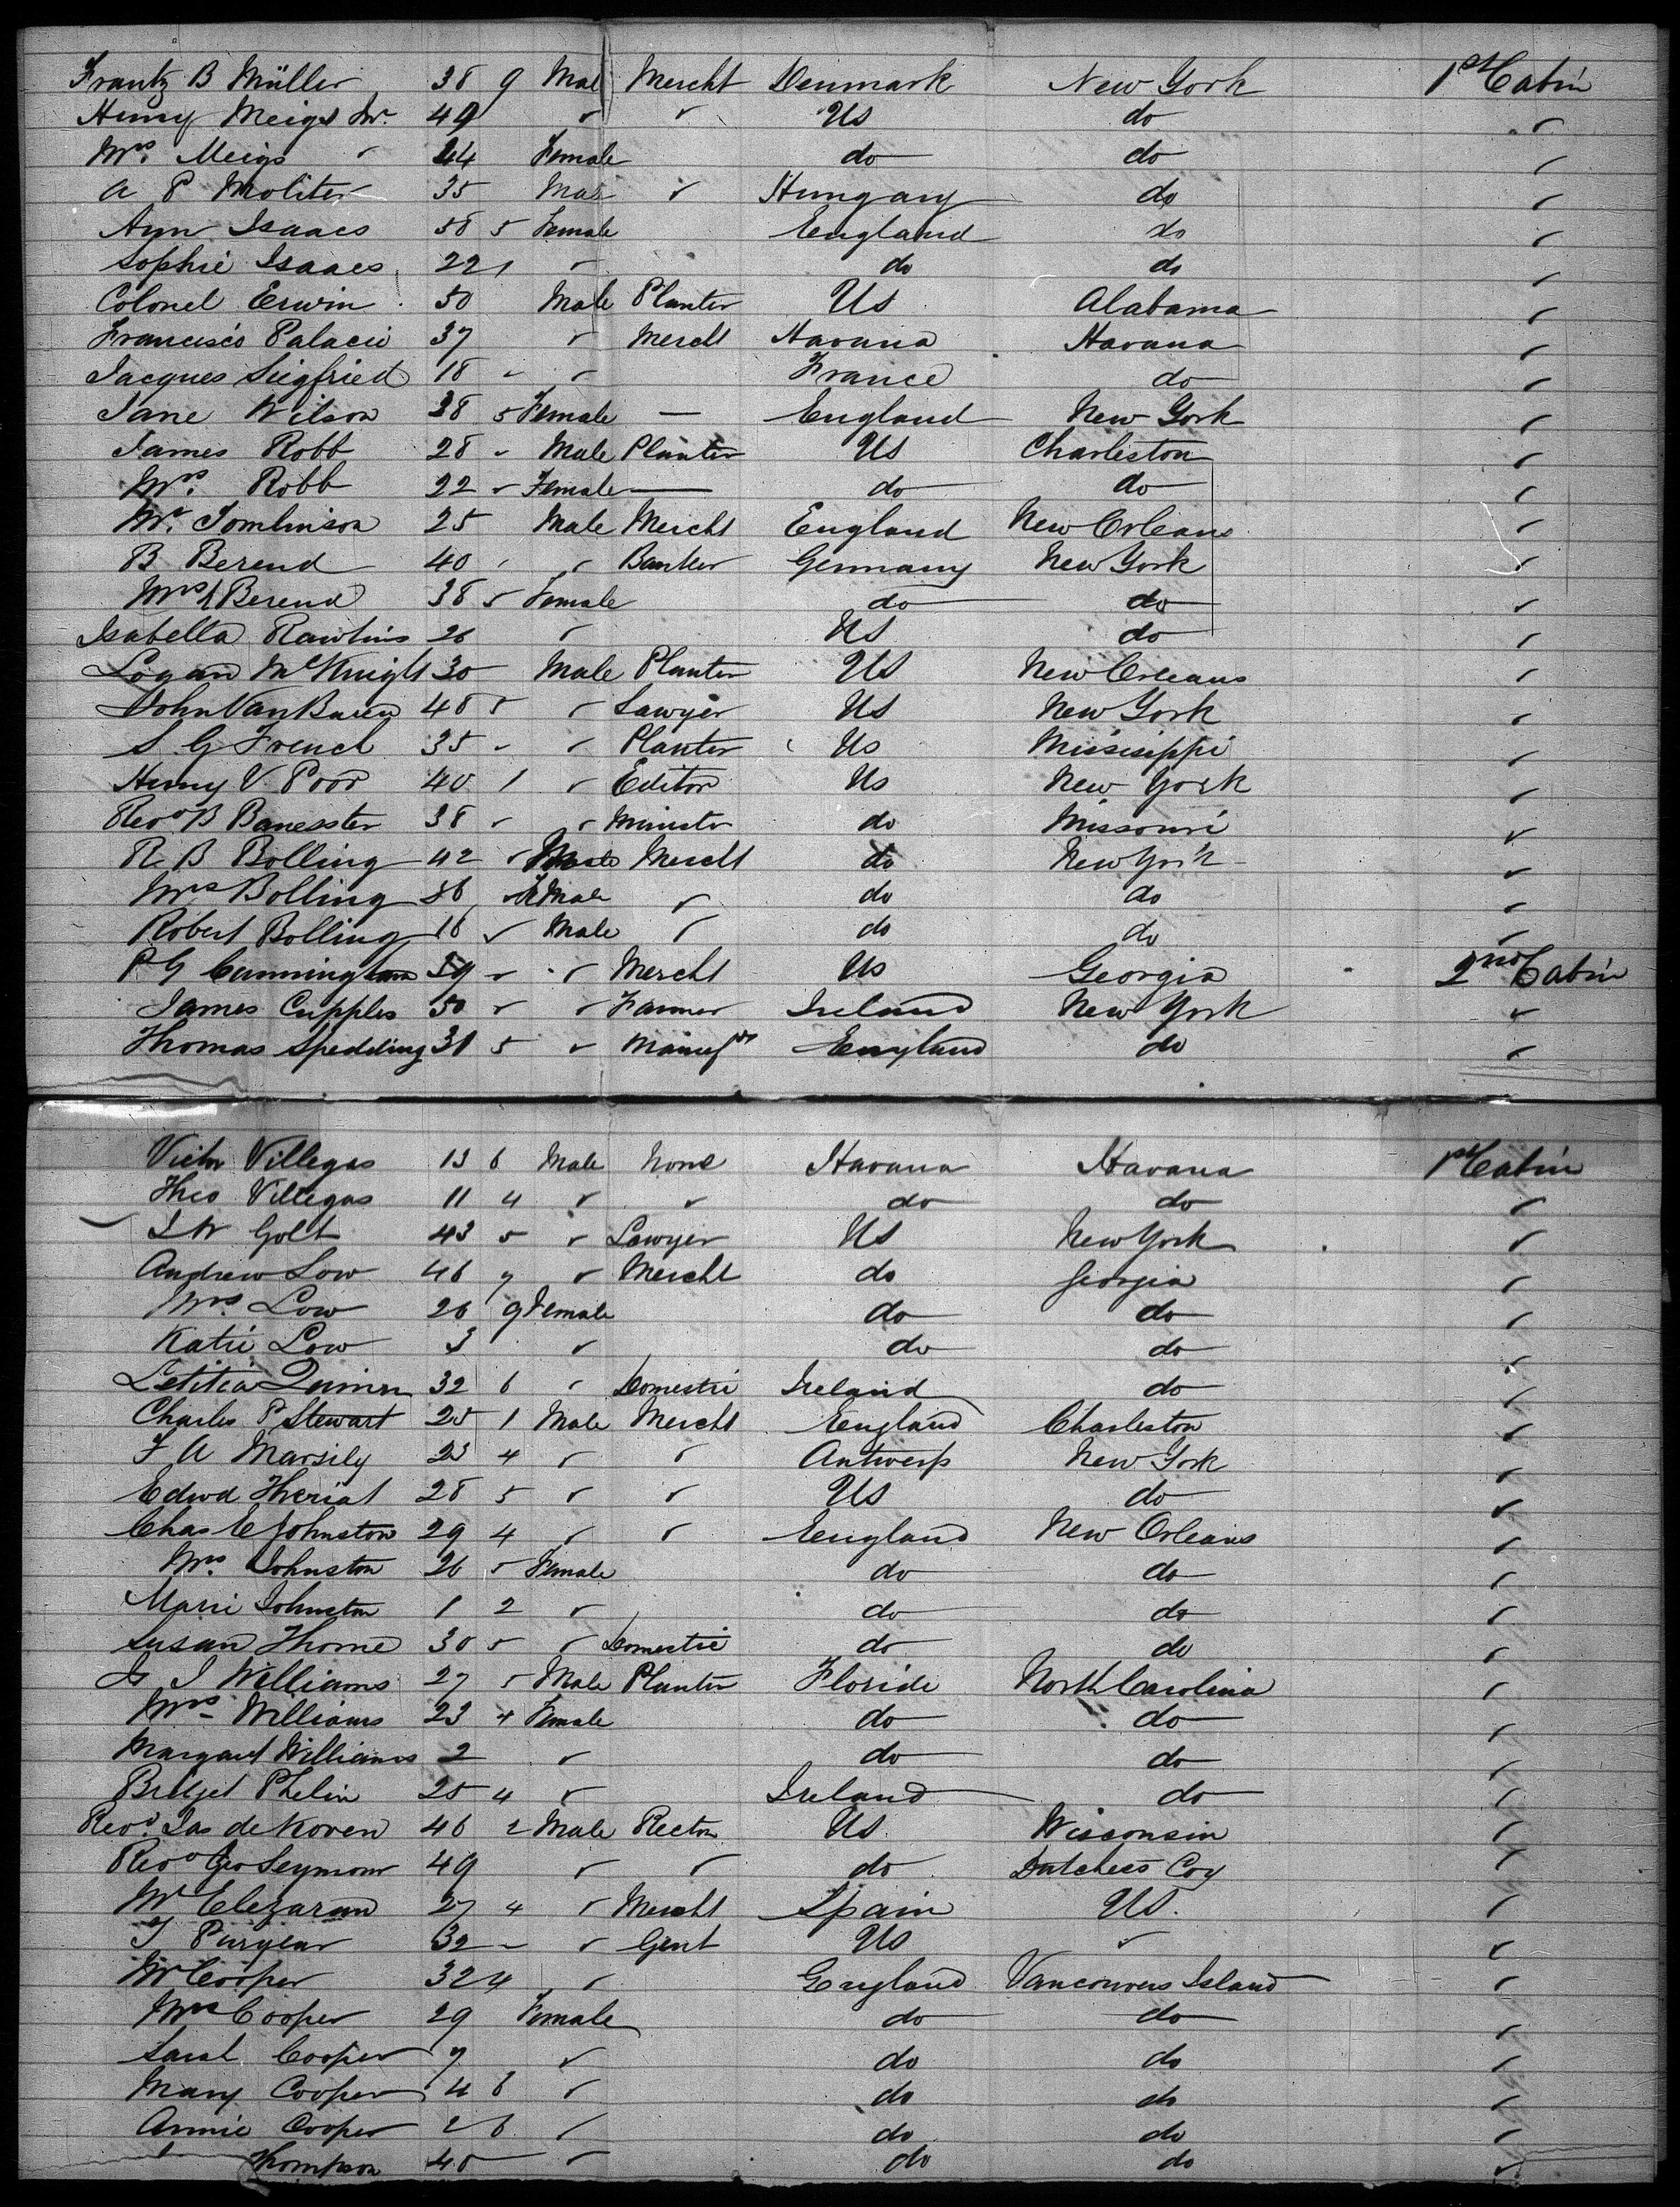 Frantz B Müller 38 9 Male Mercht Denmark New York 1st Cabin
Henry Meigs Jr. 49 " " Us do "
Mrs. Meigs " 44 Female do do "
A P Moliter 35 Male " Hungary do "
Ayn Isaacs 58 5 Female England do "
Sophie Isaacs 22 1 " do do "
Colonel Erwin 50 Male Planter Us Alabama "
Francisco Palacio 37 " Mercht Havana Havana "
Jacques Siegfried 18 " " France do "
Jane Wilson 38 5 Female — England New York "
James Robb 28 " Male Planter Us Charleston "
Mrs. Robb 22 " Female — do do "
Mr. Tomlinson 25 Male Mercht England New Orleans "
B Berend 40 " " Banker Germany New York "
Mrs Berend 38 5 Female do do "
Isabella Rawlins 26 " Us do "
Logan McKnight 30 Male Planter Us New Orleans "
John Van Buren 48 5 " Lawyer Us New York "
S. G French 35 " " Planter Us Missisippi "
Henry V. Poor 40 1 " Editor Us New York "
Revd B Banesster 38 " " Minister do Missouri "
R B Bolling 42 " Male Mercht do New York "
Mrs Bolling 36 Female " do do "
Robert Bolling 18 " Male " do do "
P G Cunningham 39 " " Mercht Us Georgia 2nd Cabin
James Cupples 50 " " Farmer Ireland New York "
Thomas Spedding 31 5 " Manufr England do "
Victor Villegas 13 6 Male None Havana Havana 1st Cabin
Theo Villegas 11 4 " " do do "
Golt 43 5 " Lawyer Us New York "
Andrew Low 46 9 " Mercht do Georgia "
Mrs. Low 26 9 Female do do "
Katie Low 3 " do do "
Letitia 32 6 " Domestic Ireland do "
Charles P Stewart 25 1 Male Mercht England Charleston "
F A Marsily 23 4 " " Antwerp New York "
Edwd Theriat 28 5 " " Us do "
Chas E Johnston 29 4 " " England New Orleans "
Mrs. Johnston 26 5 Female do do "
Marie Johnston 1 2 " do do "
Susan Thorne 30 5 " Domestic do do "
J Williams 27 5 Male Planter Floride North Carolina "
Mrs Williams 23 4 Female do do "
Margaret Williams 2 " do do "
Bridget Phelin 25 4 " Ireland do "
Revd. Jas de Koven 46 2 Male Rector Us. Wisconsin "
Revd Geo Seymour 49 " " do Dutchess Coy "
Mr Elezaran 27 4 " Mercht Spain Us. "
T Puryear 32 " " Gent Us " "
Mr Cooper 32 4 " England Vancouvers Island "
Mrs Cooper 29 Female do do "
Sarah Cooper 7 " do do "
Mary Cooper 4 6 " do do "
Annie Cooper 2 6 " do do "
Thompson 45 " do do "